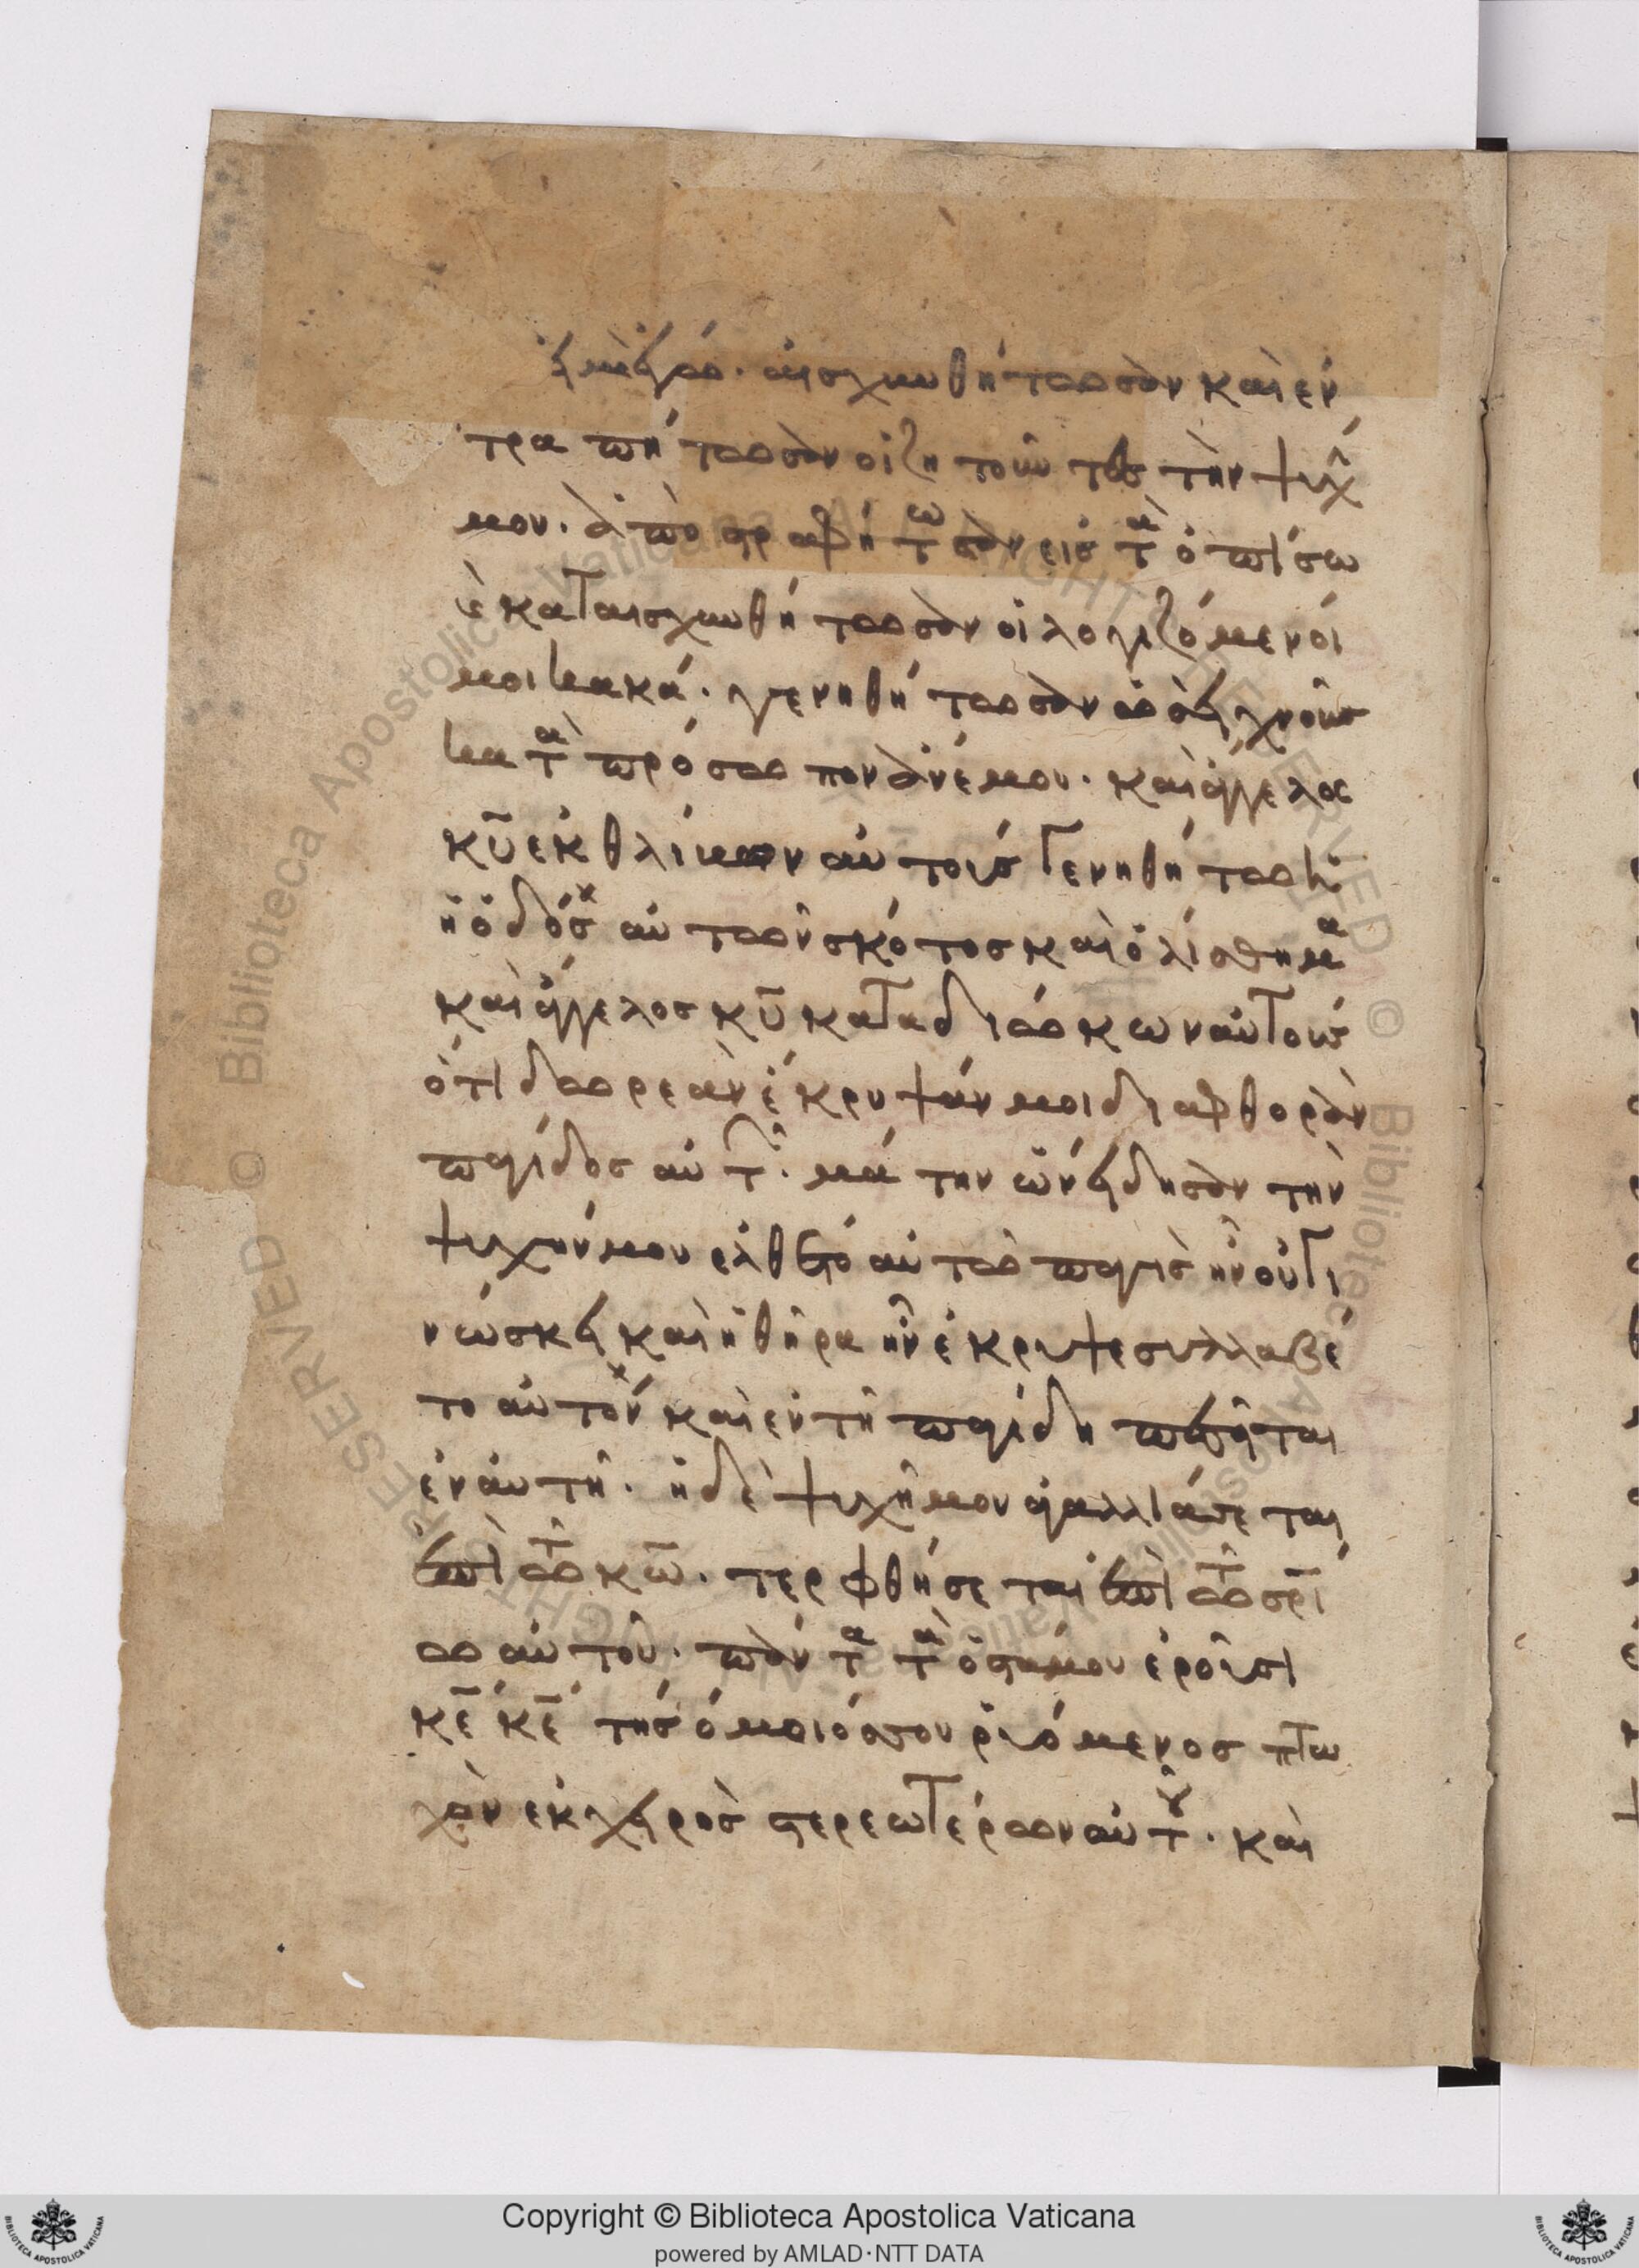 εἰμὶ ἐγώ. αἰσχυνθήτωσαν καὶ ἐν
τραπήτωσαν οἱ ζητοῦντες τὴν ψυχ̂
μου. ἀποστραφήτωσαν εἰς τὰ ὀπίσω
κ καταισχυνθήτωσαν οἱ λογιζόμενοί
μοι κακά. γενηθήτωσαν ὡσεὶ χνοῦς
κατὰ πρόσωπον ἀνέμου. καὶ ἄγγελος
κ̅υ̅ ἐκθλίβων αὐτούς Γενηθήτω
ἡ ὁδός αὐτῶν σκότος καὶ ὀλίσθημα
καὶ ἄγγελος κ̅υ̅ καταδιώκων αὐτούς
ὅτι δωρεὰν ἔκρυψάν μοι διαφθορὰν
παγίδος αὐτ̂. μάτην ὠνείδησαν τὴν
ψυχήν μου ἐλθέτω αὐτῶ παγὶς ἣν οὐ γι
νώσκει καὶ ἡ θήρα ἣν ἔκρυψε συλλαβέ
το αὐτόν καὶ ἐν τῆ παγίδη πεσεῖται
ἐν αὐτῆ. ἡ δὲ ψυχή μου ἀγαλλιάσεται
ἐπὶ τῶ κ̅ω̅. τερφθήσεται ἐπὶ τῶ σρ̅ι
ω αὐτοῦ. πάντα τὰ ὀστά μου ἐροῦσι
κ̅ε̅ κ̅ε̅ τής ὅμοιός σου ῥυόμενος πτω
χὸν ἐκ χειρὸς στερεωτέρων αὐτοῦ. καὶ
Copyright © Biblioteca Apostolica Vaticana
powered by AMLAD·NTT DATA